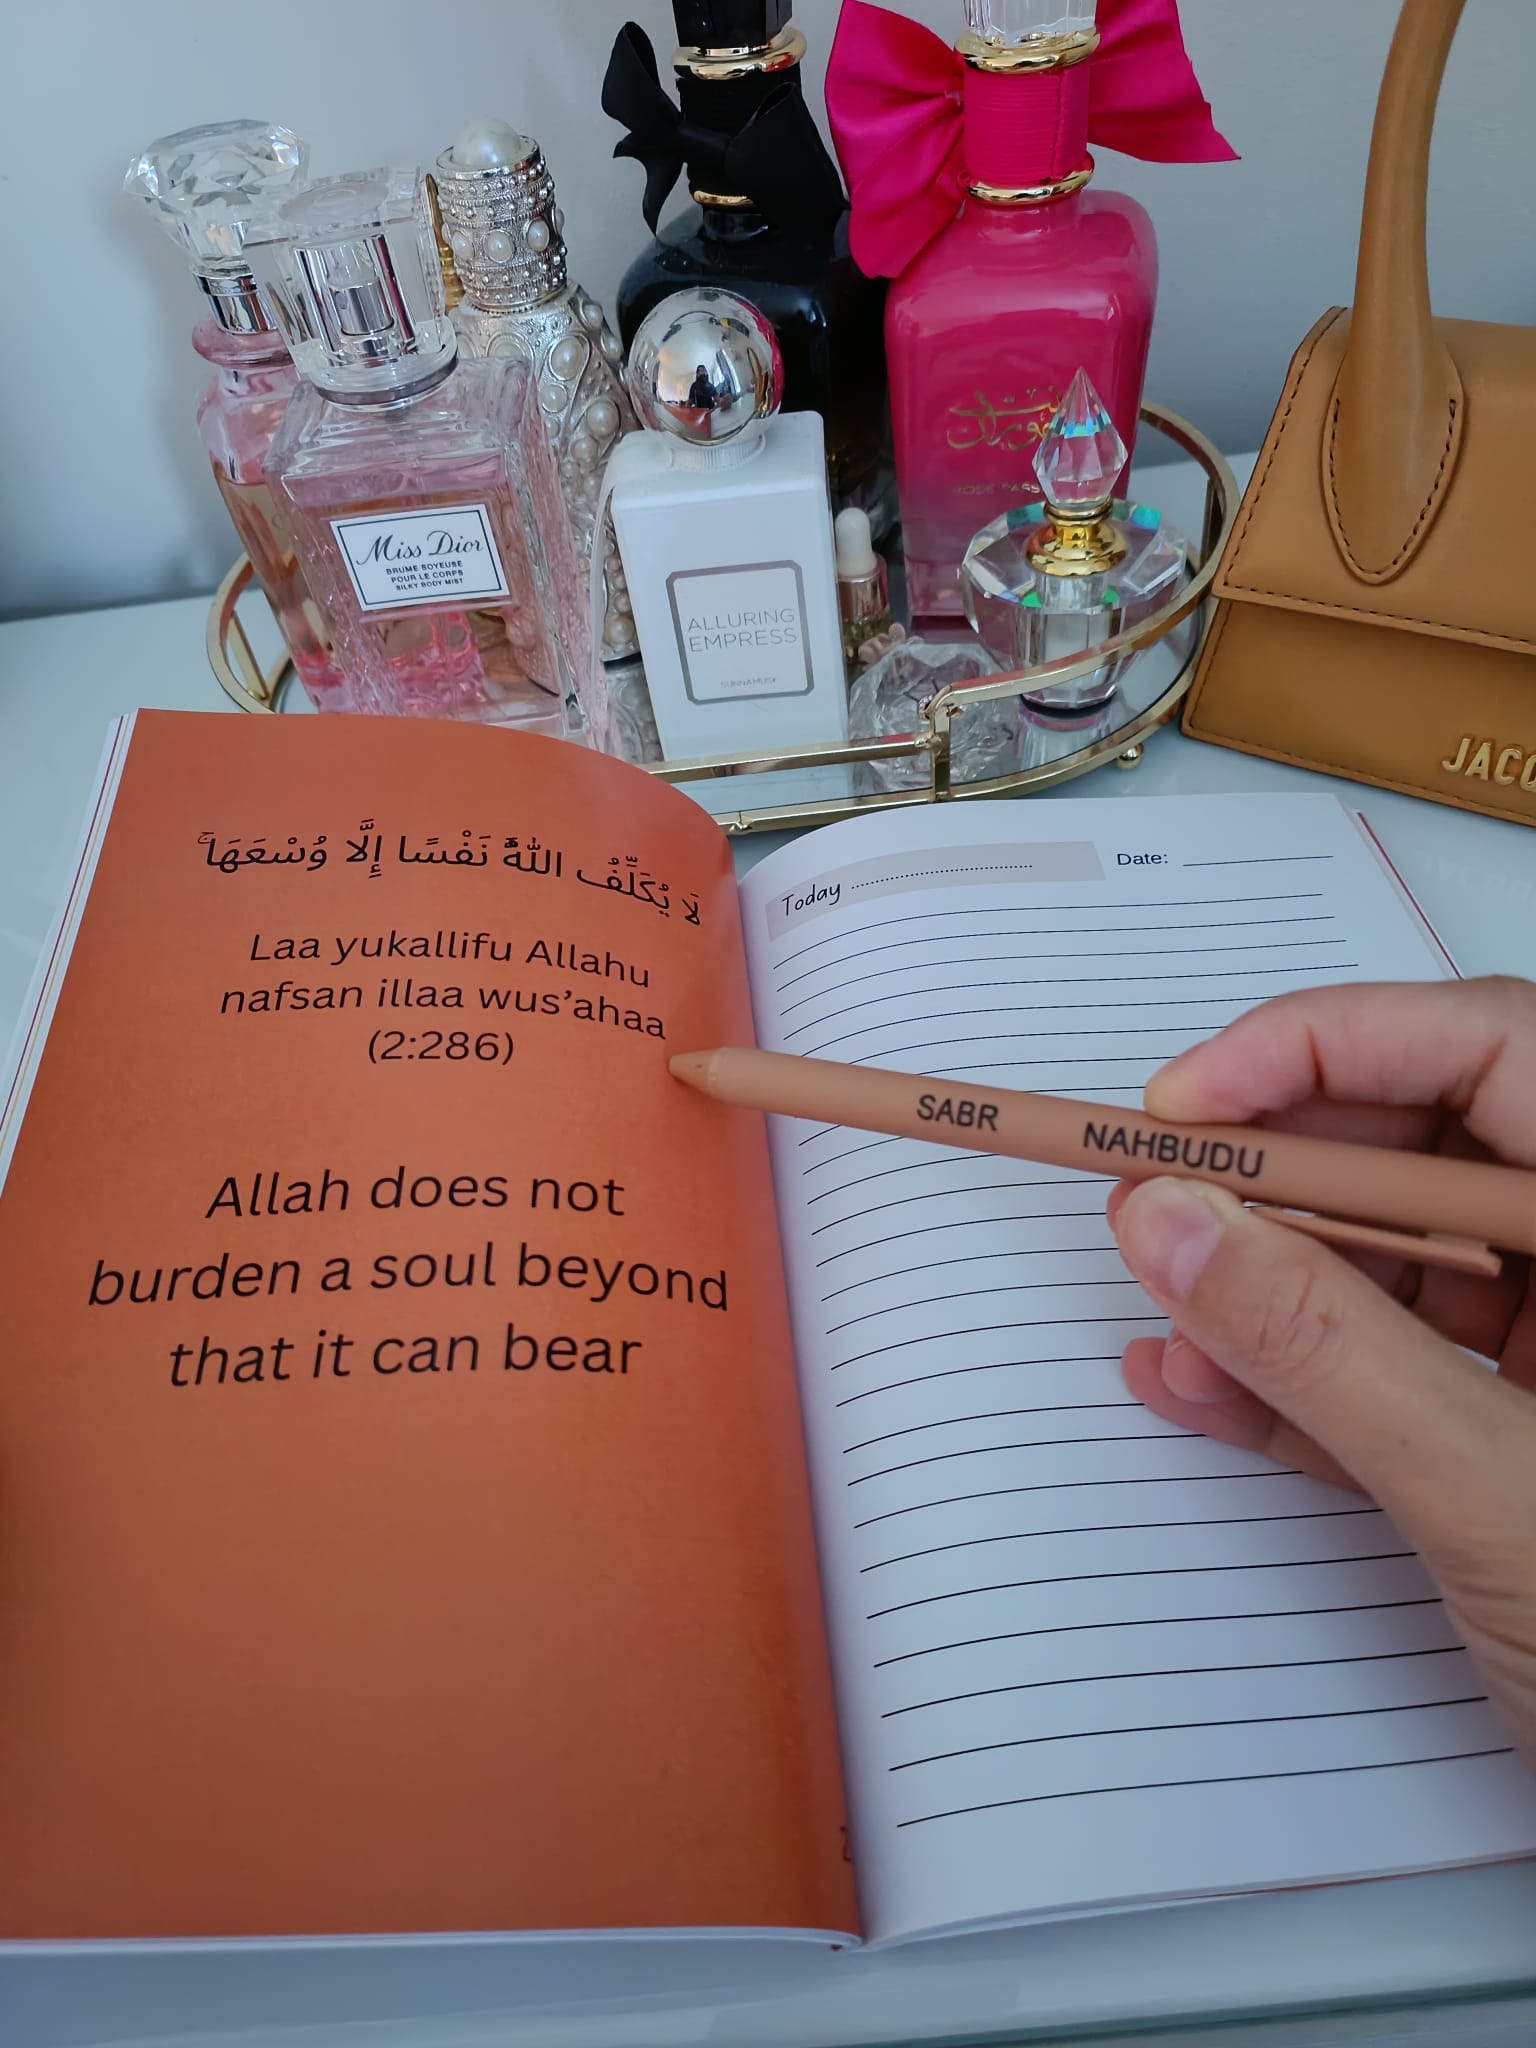 Miss Dior
BRUME SOYEUSE
POUR LE CORPS
SILKY BODY MIST
ALLURING
EMPRESS
SUNNAMUSK
JACQ
لَا يُكَلِّفُ اللَّهُ نَفْسًا إِلَّا وُسْعَهَا ۚ
Laa yukallifu Allahu
nafsan illaa wus’ahaa
(2:286)
Allah does not
burden a soul beyond
that it can bear
Today ....................................
Date:
SABR NAHBUDU